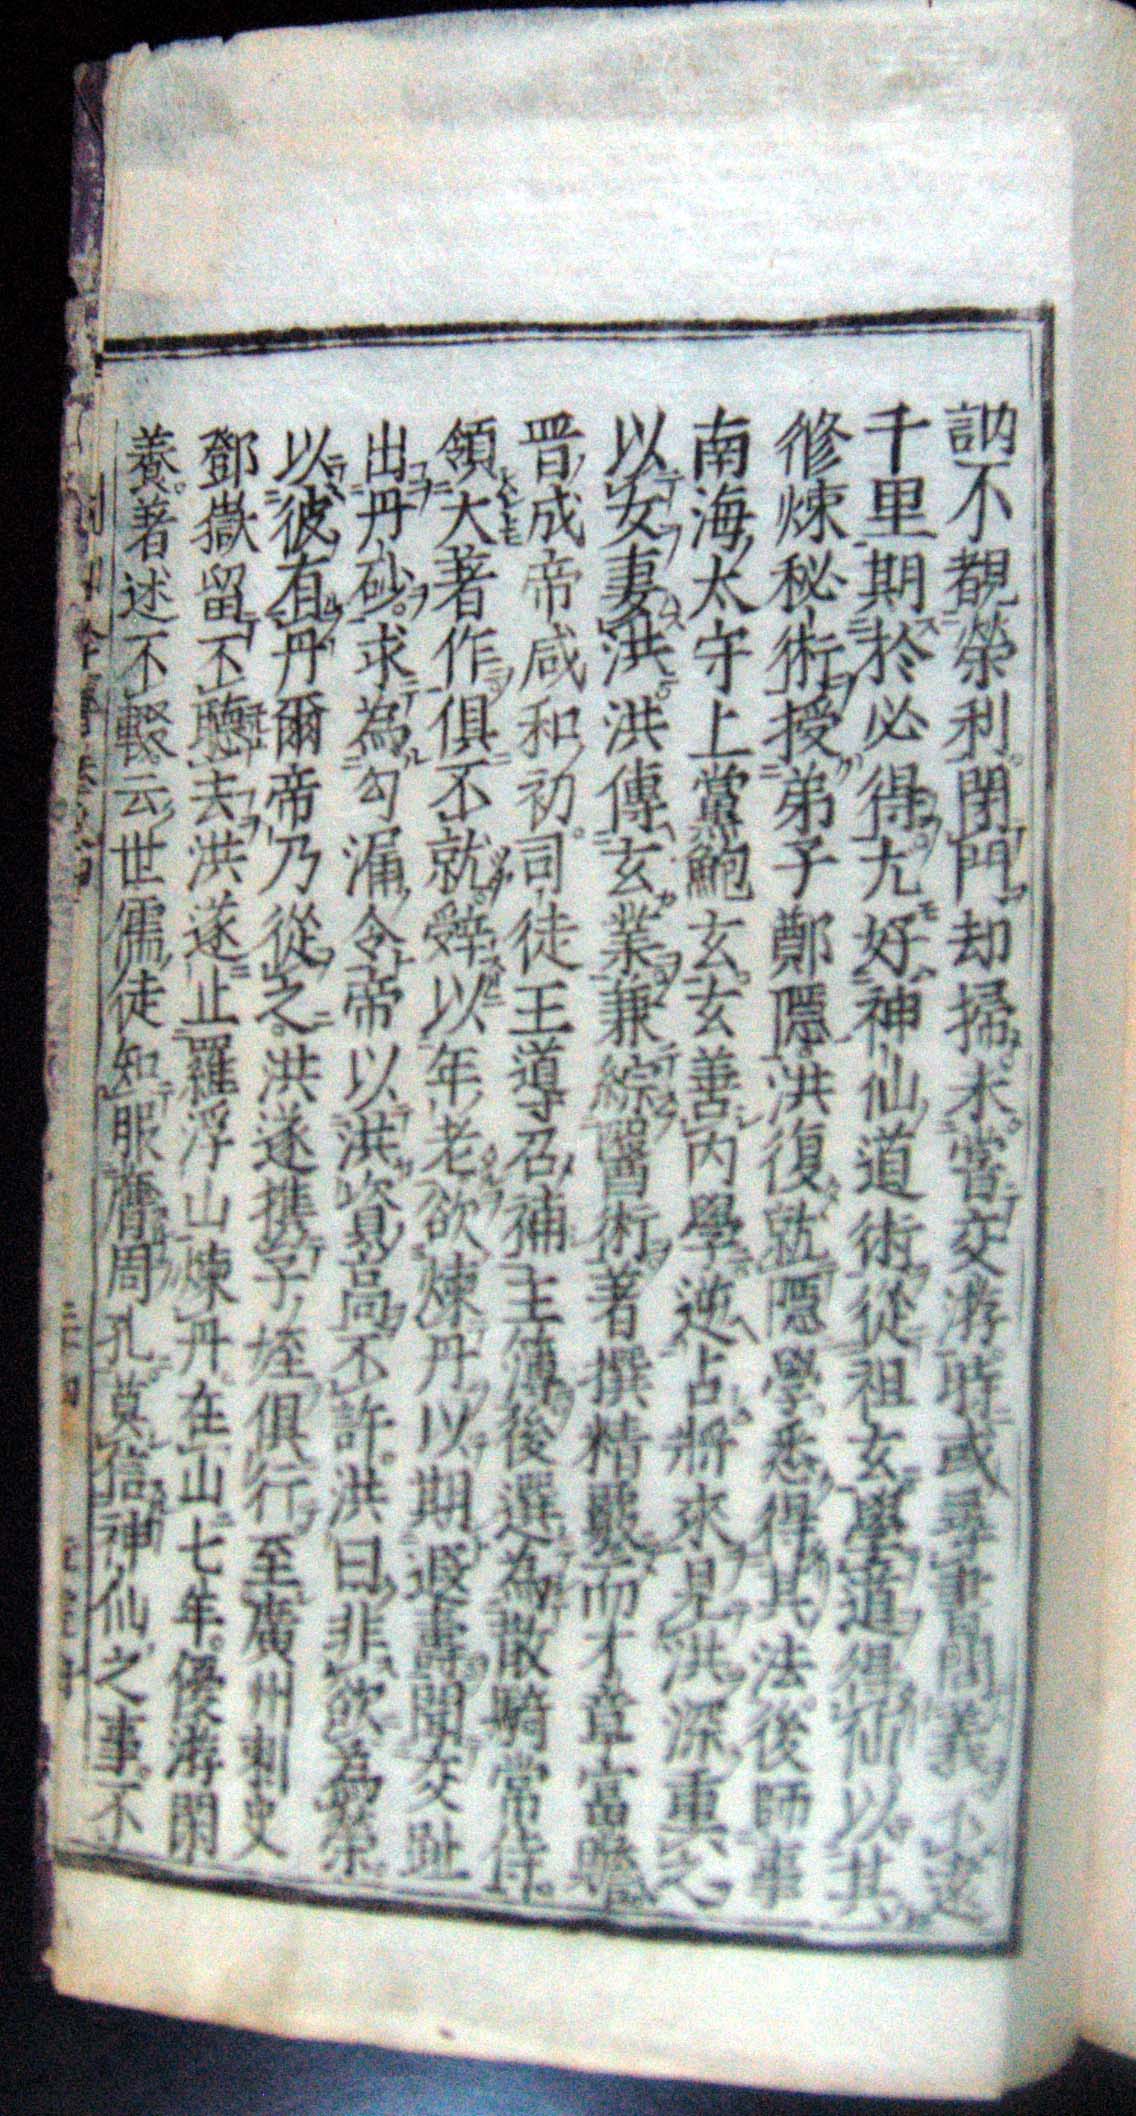 訥不覩榮利閉門却掃未甞交游時或尋書問義不遠
千里期於必得尤好神仙道術從祖玄學道得仙以其
修煉秘術授弟子鄭隱洪復就隱學悉得其法後師事
南海太守上黨鮑玄玄善內學逆占將來見洪深重之
以女妻洪洪傳玄業兼綜醫術著撰精覈而才章富贍
晋成帝咸和初司徒王導召補主簿後選為散騎常侍
領大著作俱不就辭以年老欲煉丹以期遐壽聞交趾
出丹砂求為勾漏令帝以洪資高不許洪曰非欲為榮
以彼有丹爾帝乃從之洪遂携子姪俱行至廣州刺史
鄧嶽留不聽去洪遂止羅浮山煉丹在山七年優游閑
養著述不輟云世儒徒知服膺周孔莫信神仙之事不